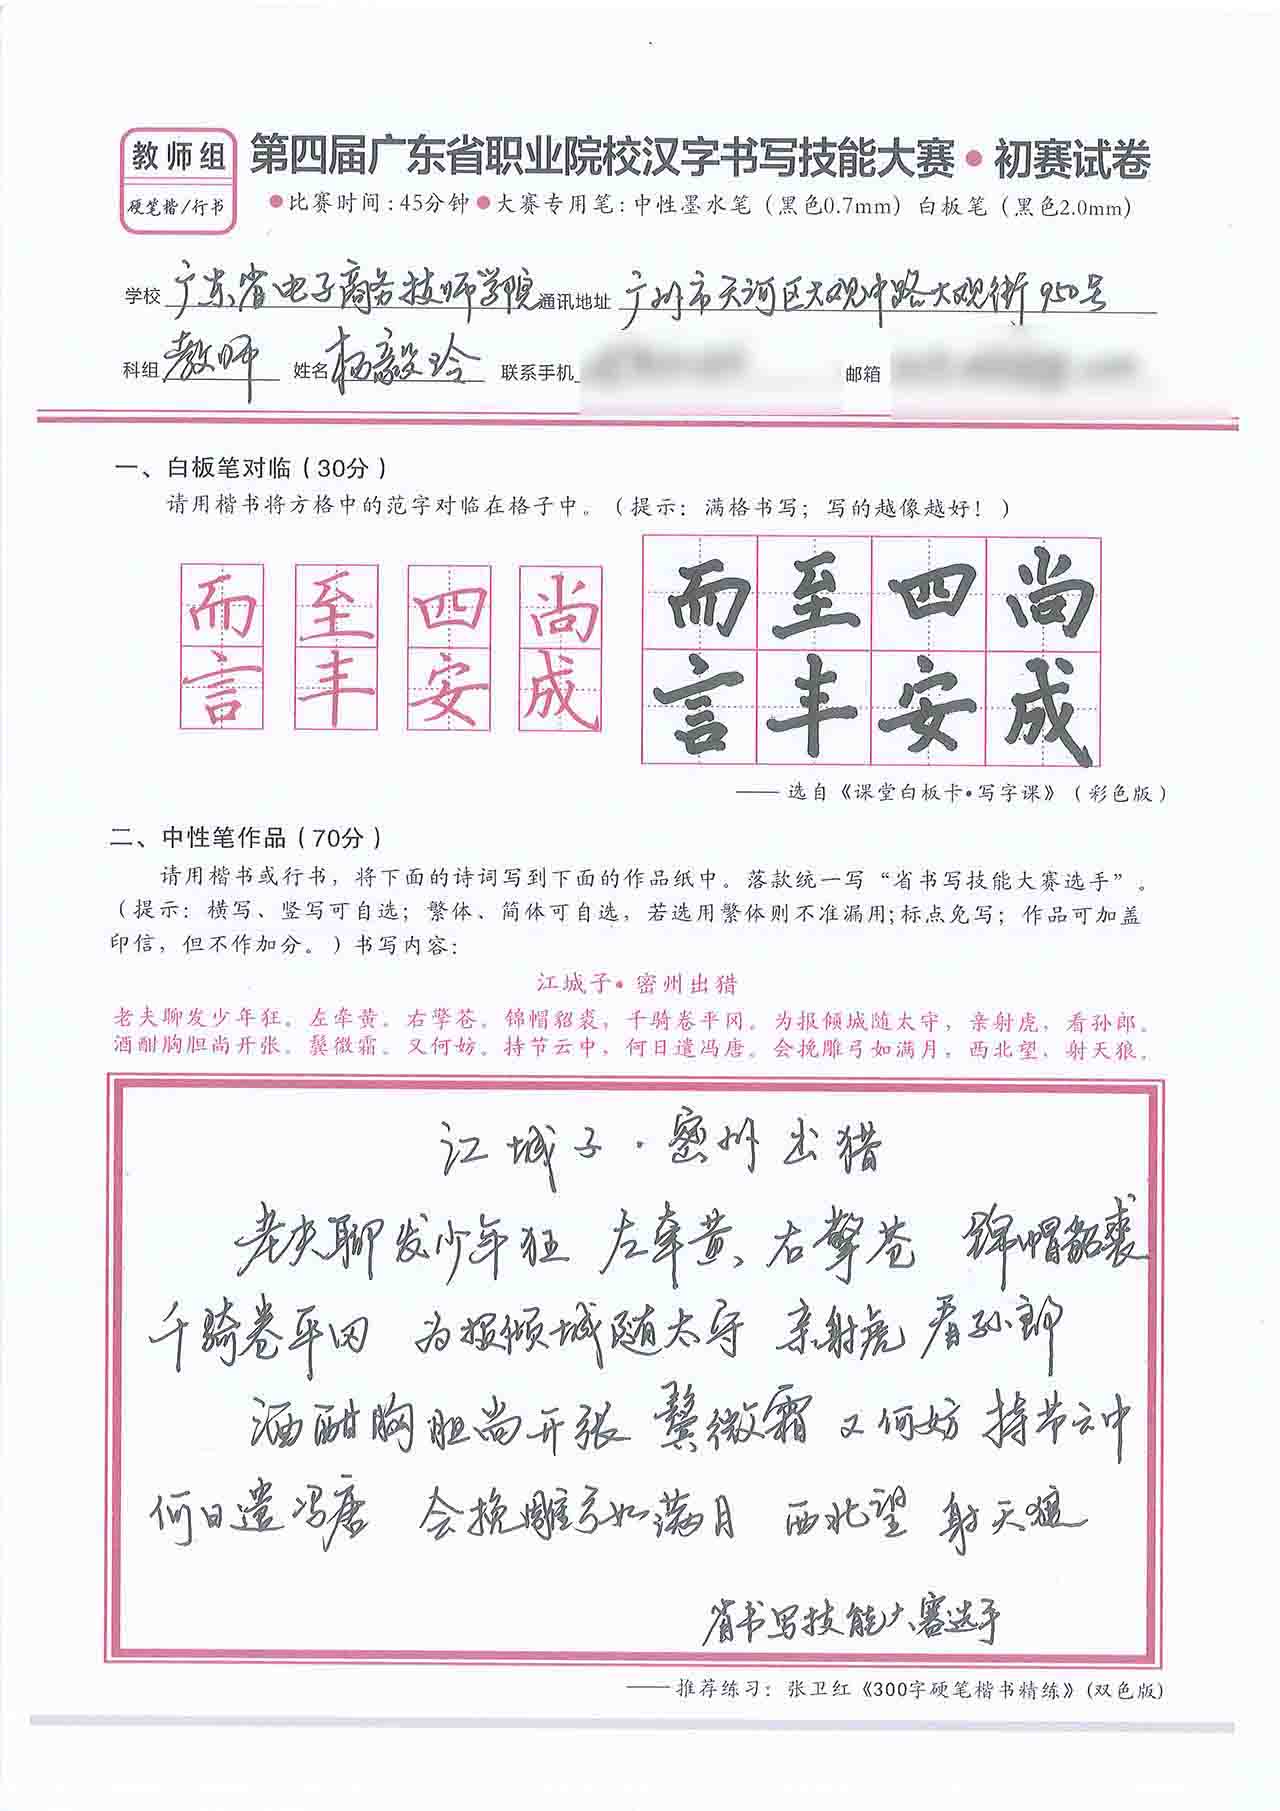 教师组
硬笔楷/行书
第四届广东省职业院校汉字书写技能大赛•初赛试卷
●比赛时间:45分钟●大赛专用笔:中性墨水笔（黑色0.7mm）白板笔（黑色2.0mm）
学校 广东省电子商务技师学院 通讯地址 广州市天河区大观中路大观街950号
科组 教师 姓名 杨毅玲 联系手机 邮箱
一、白板笔对临（30分）
请用楷书将方格中的范字对临在格子中。（提示：满格书写；写的越像越好！）
而 至 四 尚 而 至 四 尚
言 丰 安 成 言 丰 安 成
——选自《课堂白板卡•写字课》（彩色版）
二、中性笔作品（70分）
请用楷书或行书，将下面的诗词写到下面的作品纸中。落款统一写“省书写技能大赛选手”。
（提示：横写、竖写可自选；繁体、简体可自选，若选用繁体则不准漏用;标点免写；作品可加盖
印信，但不作加分。）书写内容：
江城子•密州出猎
老夫聊发少年狂。左牵黄。右擎苍。锦帽貂裘，千骑卷平冈。为报倾城随太守，亲射虎，看孙郎。
酒酣胸胆尚开张。鬓微霜。又何妨。持节云中，何日遣冯唐。会挽雕弓如满月，西北望，射天狼。
江城子·密州出猎
老夫聊发少年狂 左牵黄、右擎苍 锦帽貂裘
千骑卷平冈 为报倾城随太守 亲射虎 看孙郎
酒酣胸胆尚开张 鬓微霜 又何妨 持节云中
何日遣冯唐 会挽雕弓如满月 西北望 射天狼
省书写技能大赛选手
——推荐练习：张卫红《300字硬笔楷书精练》(双色版)